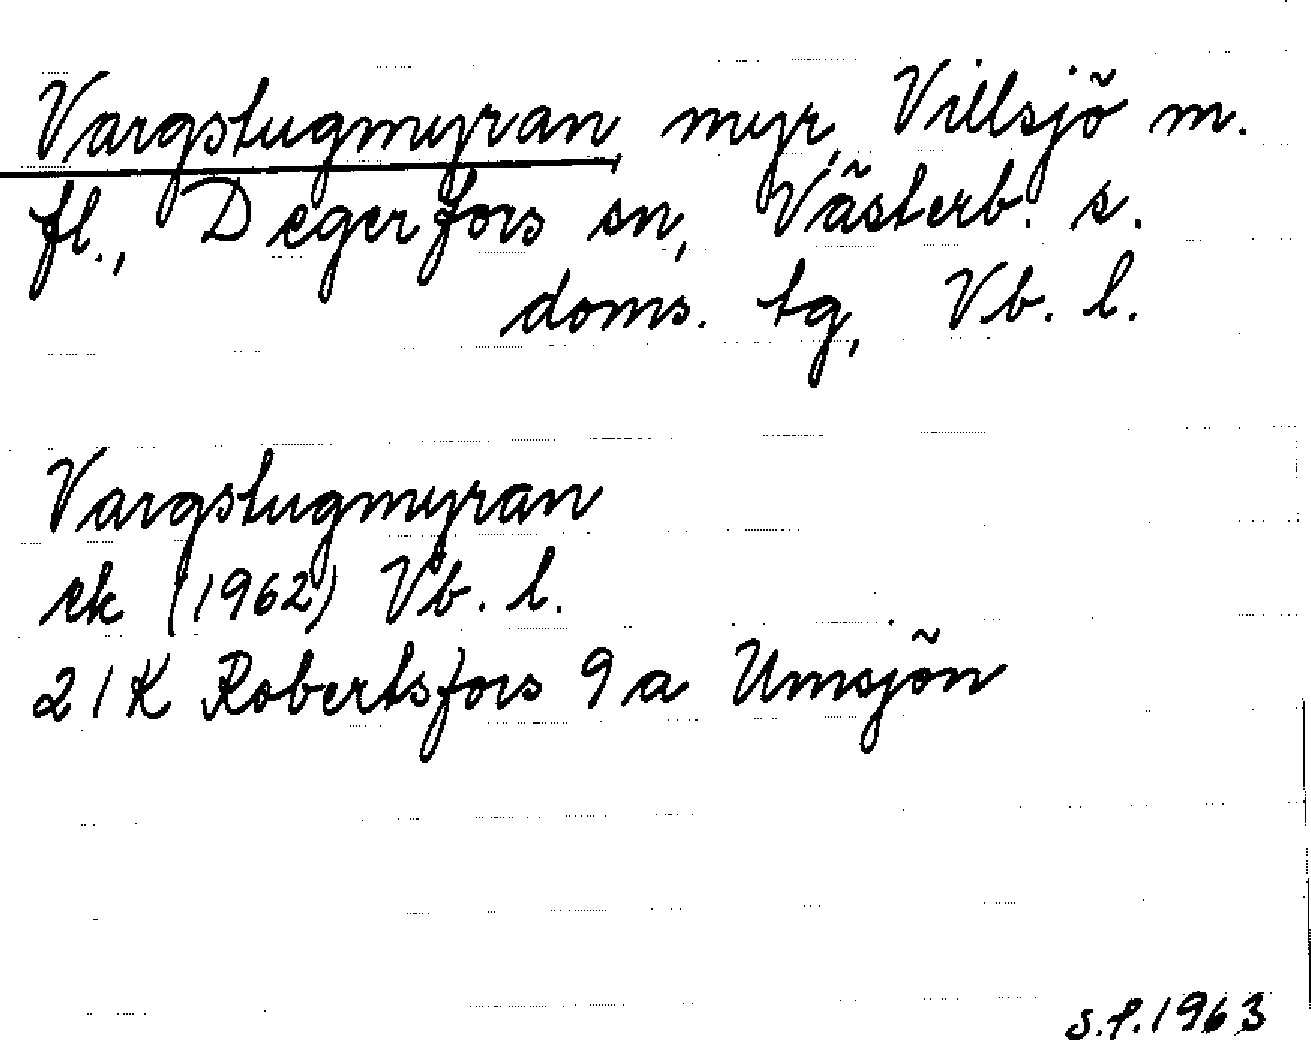 Vargstugmyran, myr, Villsjö m.
fl., Degerfors sn, Västerb. s.
doms. tg, Vb. l.
Vargstugmyran
ek (1962) Vb. l.
21K Robertsfors 9a Umsjön
s.f. 1963